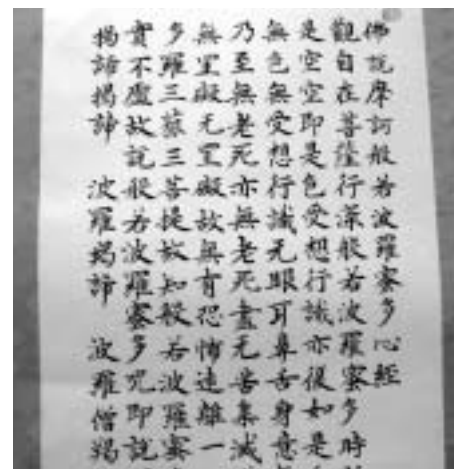 佛說摩訶般若波羅蜜多心經
觀自在菩薩行深般若波羅蜜多時
是空空即是色受想行識亦復如是
無色無受想行識无眼耳鼻舌身意
乃至無老死亦無老死盡无苦集滅
無罣礙无罣礙故無有恐怖遠離一
多羅三藐三菩提故知般若波羅蜜
實不虛故說般若波羅蜜多咒即說
揭諦揭諦 波羅揭諦 波羅僧揭